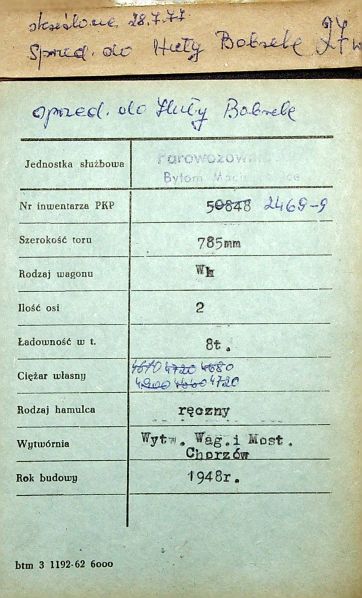 skreślono 28.7.77
Sprzed. do Huty Bobrek
sprzed. do Huty Bobrek
Jednostka służbowa Parowozownia
Bytom
Nr inwentarza PKP 50848 2469-9
Szerokość toru 785mm
Rodzaj wagonu Wk
Ilość osi 2
Ładowność w t. 8t.
Ciężar własny 4720 4680
4200 4720
Rodzaj hamulca ręczny
Wytwórnia Wytw. Wag.i Most.
Chorzów
Rok budowy 1948r.
btm 3 1192-62 6000